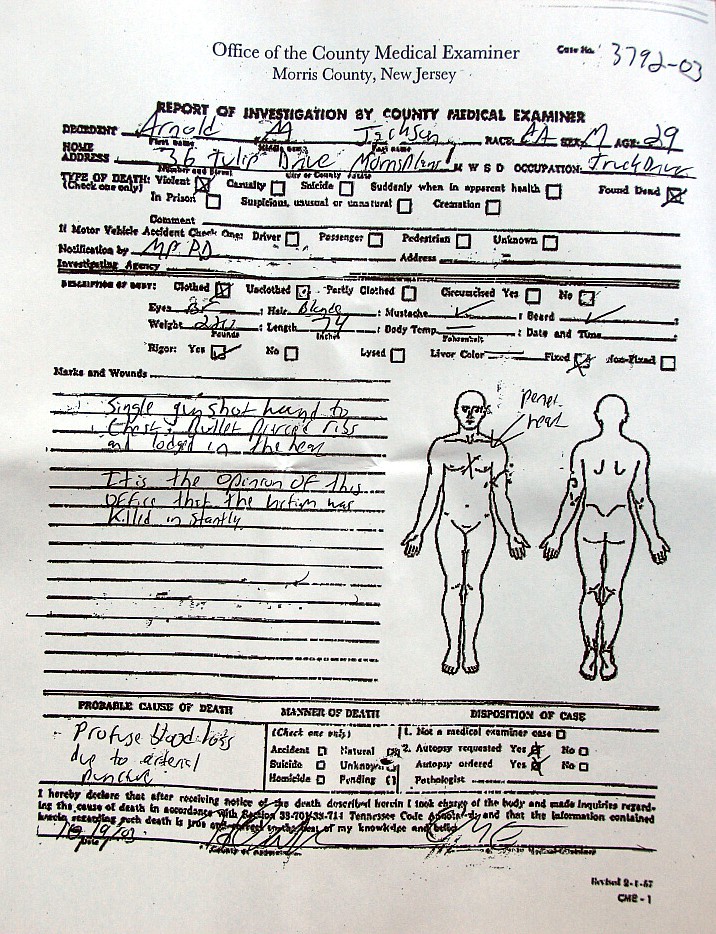 Office of the County Medical Examiner
Case No. 3792-03
Morris County, New Jersey
REPORT OF INVESTIGATION BY COUNTY MEDICAL EXAMINER
DECEDENT Arnold M Jackson RACE: AA SEX: M AGE: 29
First name Middle name Last name
HOME ADDRESS 36 Tulip Drive Morris Plains M W S D OCCUPATION: Truck Driver
Number and Street City or County State
TYPE OF DEATH: Violent Casualty Suicide Suddenly when in apparent health Found Dead
(Check one only) In Prison Suspicious, unusual or unnatural Cremation
Comment
If Motor Vehicle Accident Check One: Driver Passenger Pedestrian Unknown
Notification by MP. PD Address
Investigating Agency
DESCRIPTION OF BODY: Clothed Unclothed Partly Clothed Circumcised Yes No
Eyes Br : Hair : Mustache : Beard :
Weight 220 : Length 74 : Body Temp. : Date and Time :
Pounds Inches Fahrenheit
Rigor: Yes No Lysed Livor Color Fixed Non-Fixed
Marks and Wounds
penet
heart
Single gunshot
chest. Bullet pierced ribs
and lodged in the
It is the opinion of this
office that the victim was
killed instantly
PROBABLE CAUSE OF DEATH
Profuse blood loss
due to arterial
puncture
MANNER OF DEATH
(Check one only)
Accident Natural
Suicide Unknown
Homicide Pending
DISPOSITION OF CASE
1. Not a medical examiner case
2. Autopsy requested Yes No
Autopsy ordered Yes No
Pathologist
I hereby declare that after receiving notice of the death described herein I took charge of the body and made inquiries regard-
ing the cause of death in accordance with Section 38-701-38-714 Tennessee Code Annotated and that the information contained
herein regarding such death is true and correct to the best of my knowledge and belief.
10/19/03 CME
Date County of Appointment
Revised 2-1-67
CME - 1